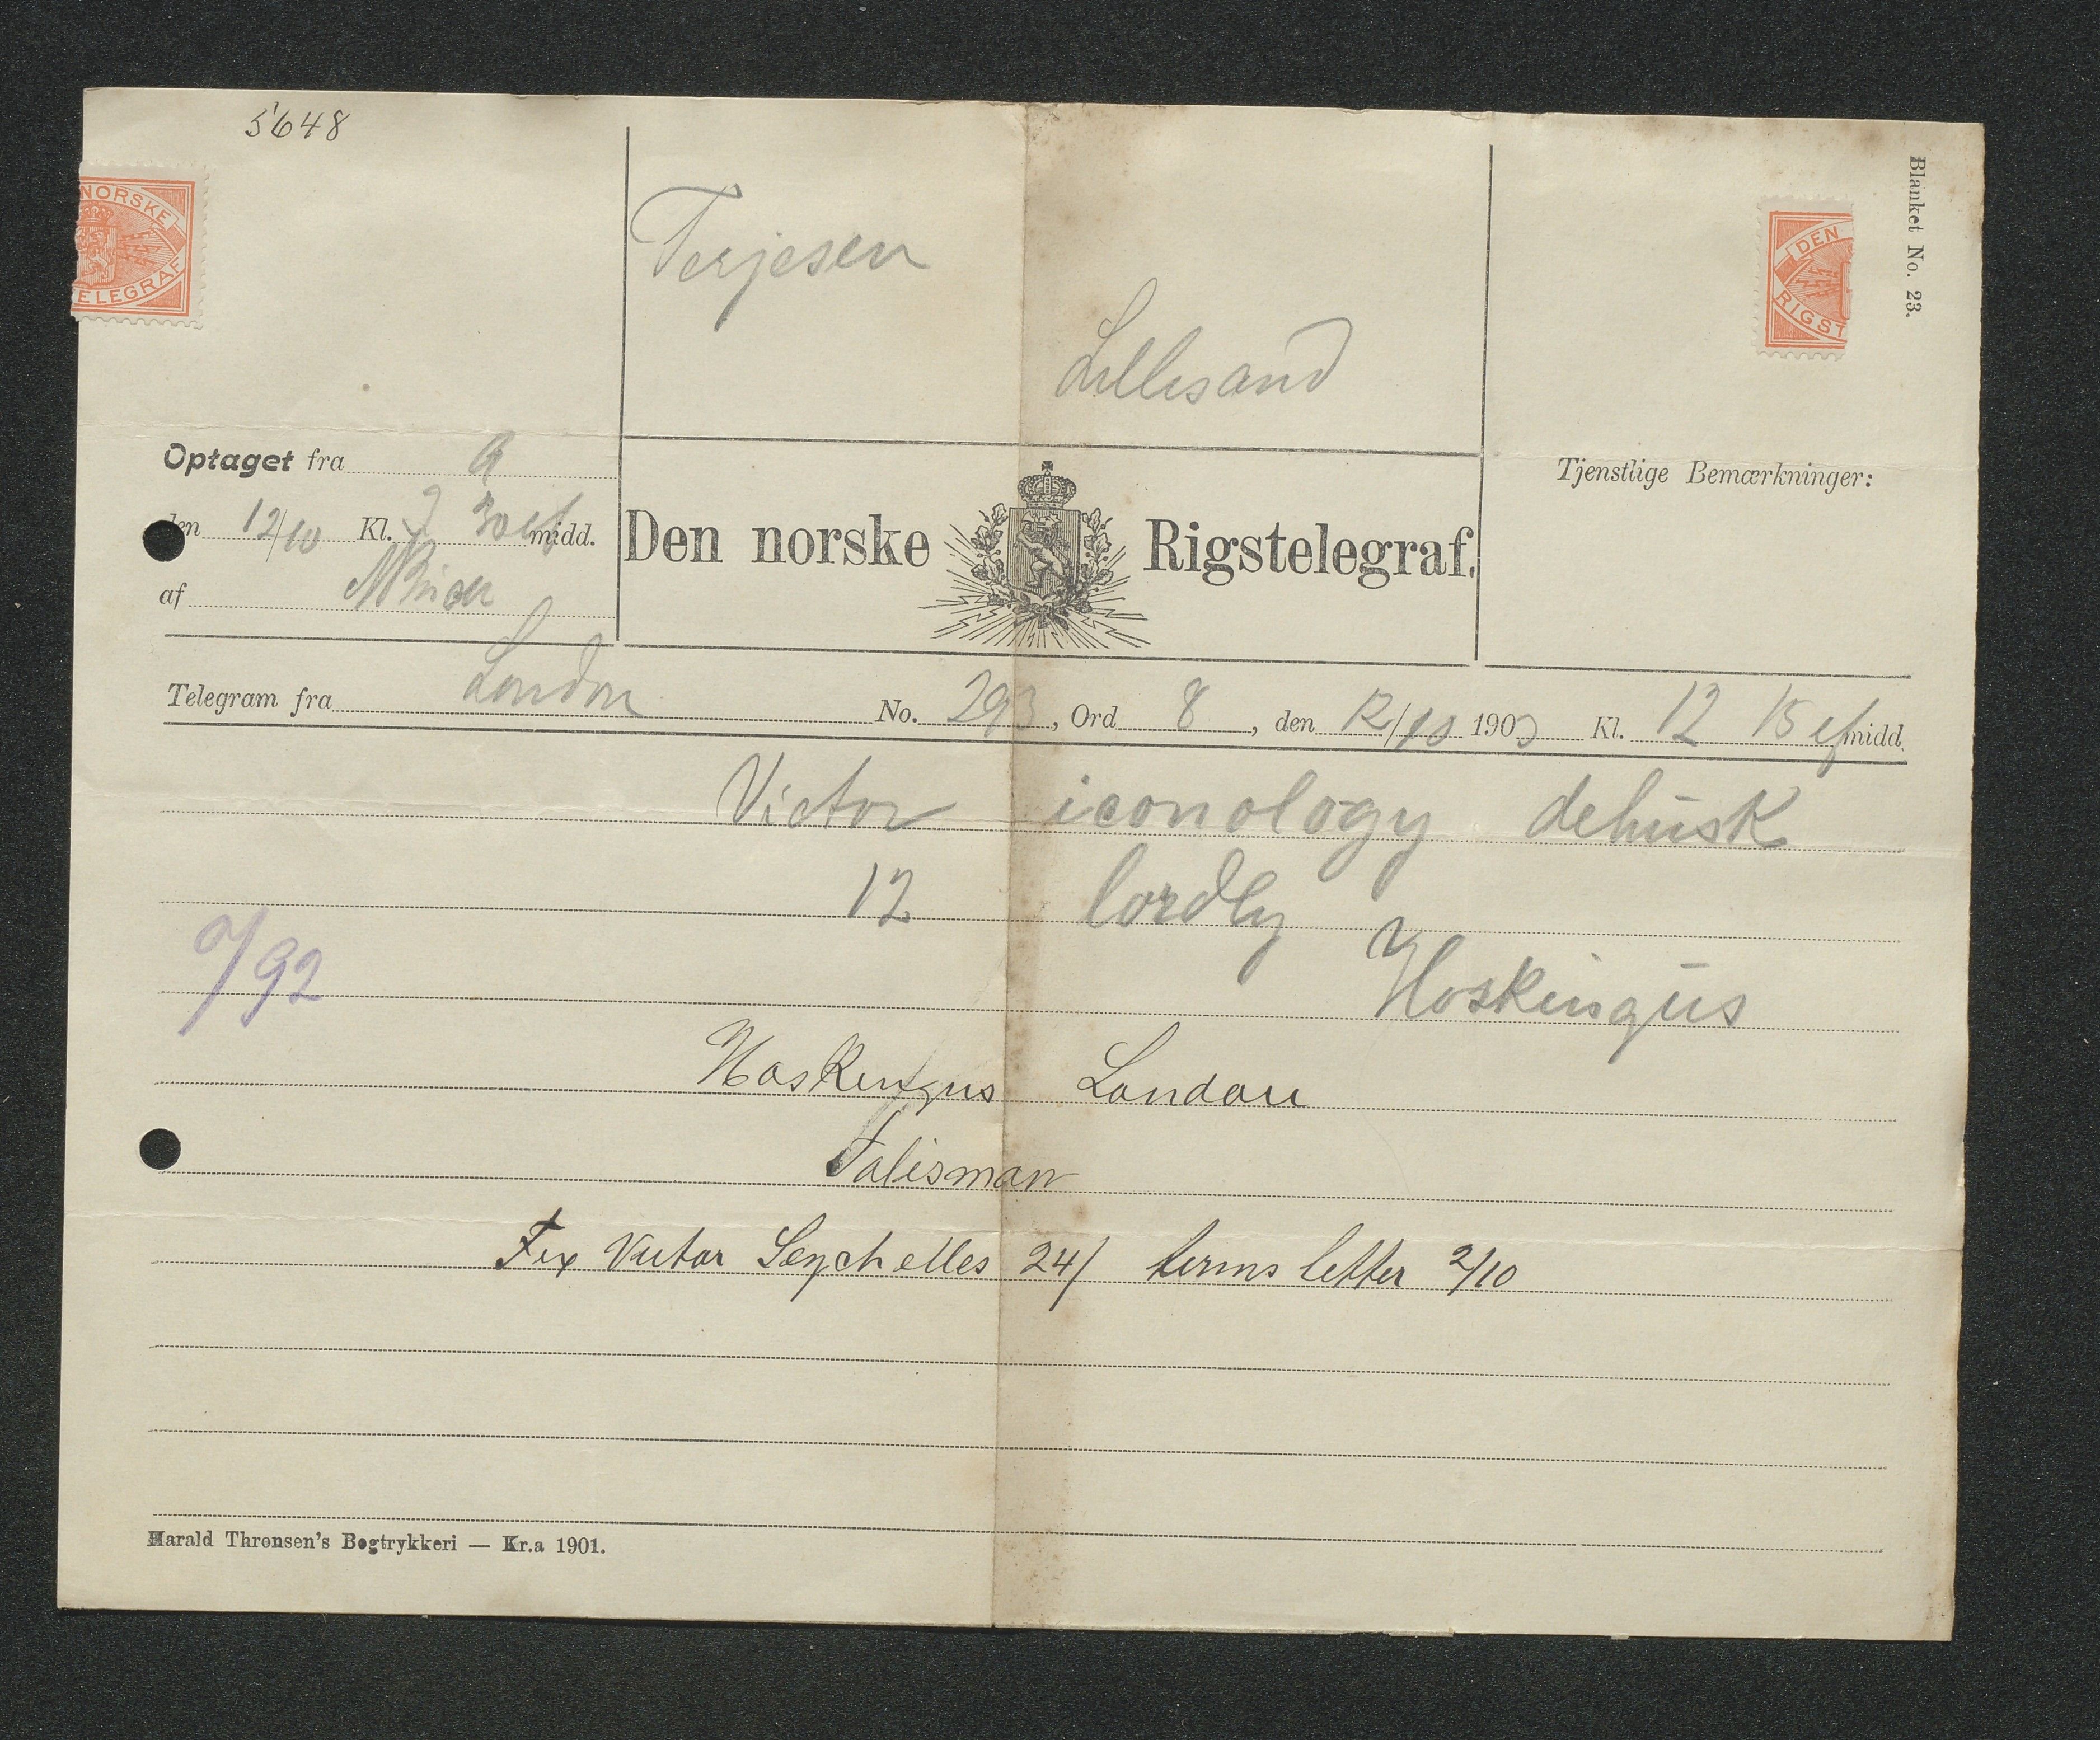 5648
NORSKE
TELEGRAF
Terjesen
Lillesand
DEN
RIGST
Blanket No. 23.
Optaget fra A
den 12/10 Kl. 2 30 ef midd.
af
Den norske Rigstelegraf.
Tjenstlige Bemærkninger:
Telegram fra London No. 293, Ord 8, den 12/10 1903 Kl. 12 15 ef midd.
Victor iconology dehusk
12 lordly
Hoskingus
9/92
Hoskingus London
Talisman
Fix Victor Seychelles 24/ terms letter 2/10
Harald Thronsen's Bogtrykkeri — Kr.a 1901.